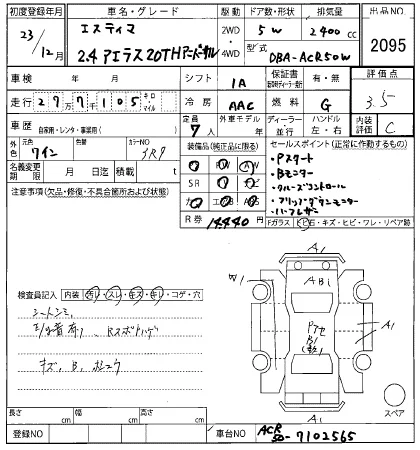 初度登録年月 車名・グレード 駆動 ドア数・形状 排気量 出品NO
23/12月 エスティマ 2WD・4WD 5W 2400cc 2095
2.4 アエラス20THアニバーサル 型式 DBA-ACR50W
車検 年 月 シフト IA 保証書 有・無 評価点
走行 277105 キロ・マイル 冷房 AAC 燃料 G 3.5
車歴 自家用・レンタ・事業用( ) 定員 7人 外車モデル 年 ディーラー・並行 ハンドル 左・右 内装評価 C
外色 元色 ワイン 色替 カラーNO 3R9
装備品(純正品に限る) セールスポイント(正常に作動するもの)
名義変更期限 月 日迄 積載量 t
・Pスタート
・Bモニター
・クルーズコントロール
・フリップダウンモニター
・ハーフレザー
SR
R券 14440円
注意事項(欠品・修復・不具合箇所および状態)
Fガラス トビ石・キズ・ヒビ・ワレ・リペア跡
A1
検査員記入 内装 汚レ・スレ・キズ・キレ・コゲ・穴
W1
ABi
シートシミ
A1
B1
キズ、B、
長さ cm 幅 cm 高さ cm
A1
スペア
登録NO 車台NO ACR50-7102565